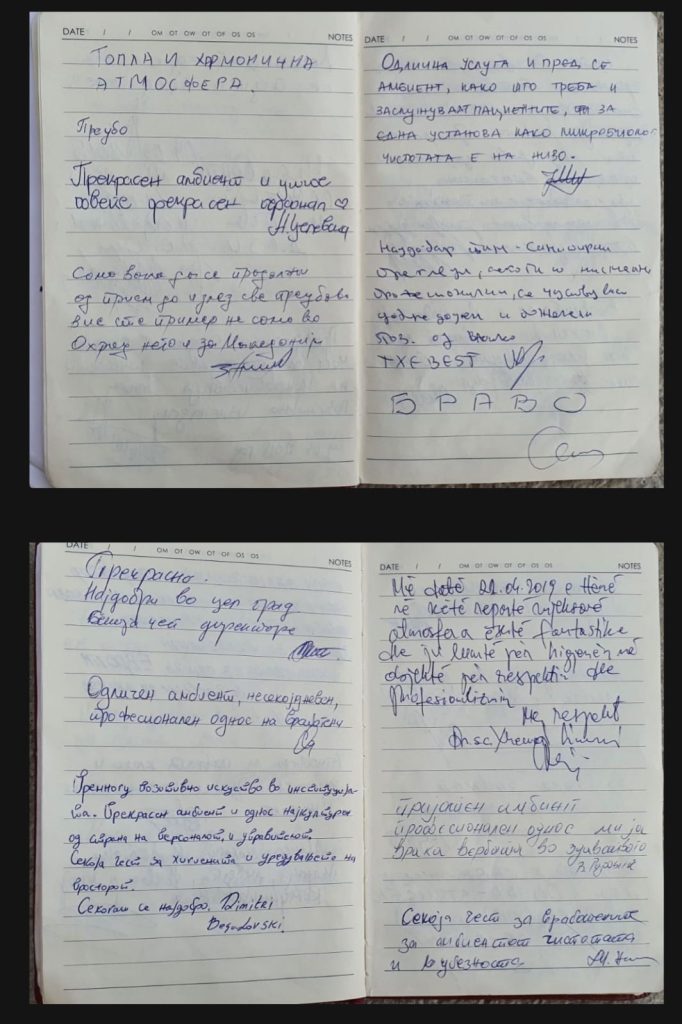 DATE / / OM OT OW OT OF OS OS NOTES
ТОПЛА И ХАРМОНИЧНА
АТМОСФЕРА.
Преубо
Прекрасен амбиент и уште
повеќе прекрасен персонал ♡
Само вака да се продолжи
од прием до излез све преубаво
вие сте пример не само во
Охрид него и за Македонија
DATE / / NOTES
ОДЛИЧНА УСЛУГА И ПРЕД СЕ
АМБИЕНТ, КАКО ШТО ТРЕБА И
ЗАСЛУЖУВААТ ПАЦИЕНТИТЕ, ЗА
ЕДНА УСТАНОВА КАКО
ЧИСТОТАТА Е НА НИВО.
Најдобар тим -
се чувствував
поз. од
TXE BEST
БРАВО
DATE / / OM OT OW OT OF OS OS NOTES
Прекрасно.
Најдобри во цел град
Секоја чест директоре
Одличен амбиент, несекојдневен,
професионален однос на вработени
Премногу позитивно искуство во институција-
та. Прекрасен амбиент и однос најкултурен
од страна на персоналот и управителот.
Секоја чест за хигиената и уредувањето на
просторот.
Секогаш се најдобро. Dimitri
Bogdanovski.
DATE / / OM OT OW OT OF OS OS NOTES
Më datë 22.04.2019 e Hënë
në këtë
atmosfera është fantastike
dhe ju lumtë për higjenën në
për respektin dhe
profesionalizmin
Me respekt
Dr.sc.
Пријатен амбиент
професионален однос ми ја
врати вербата во здравството
Секоја чест за вработените
за амбиентот чистотата
и љубезноста